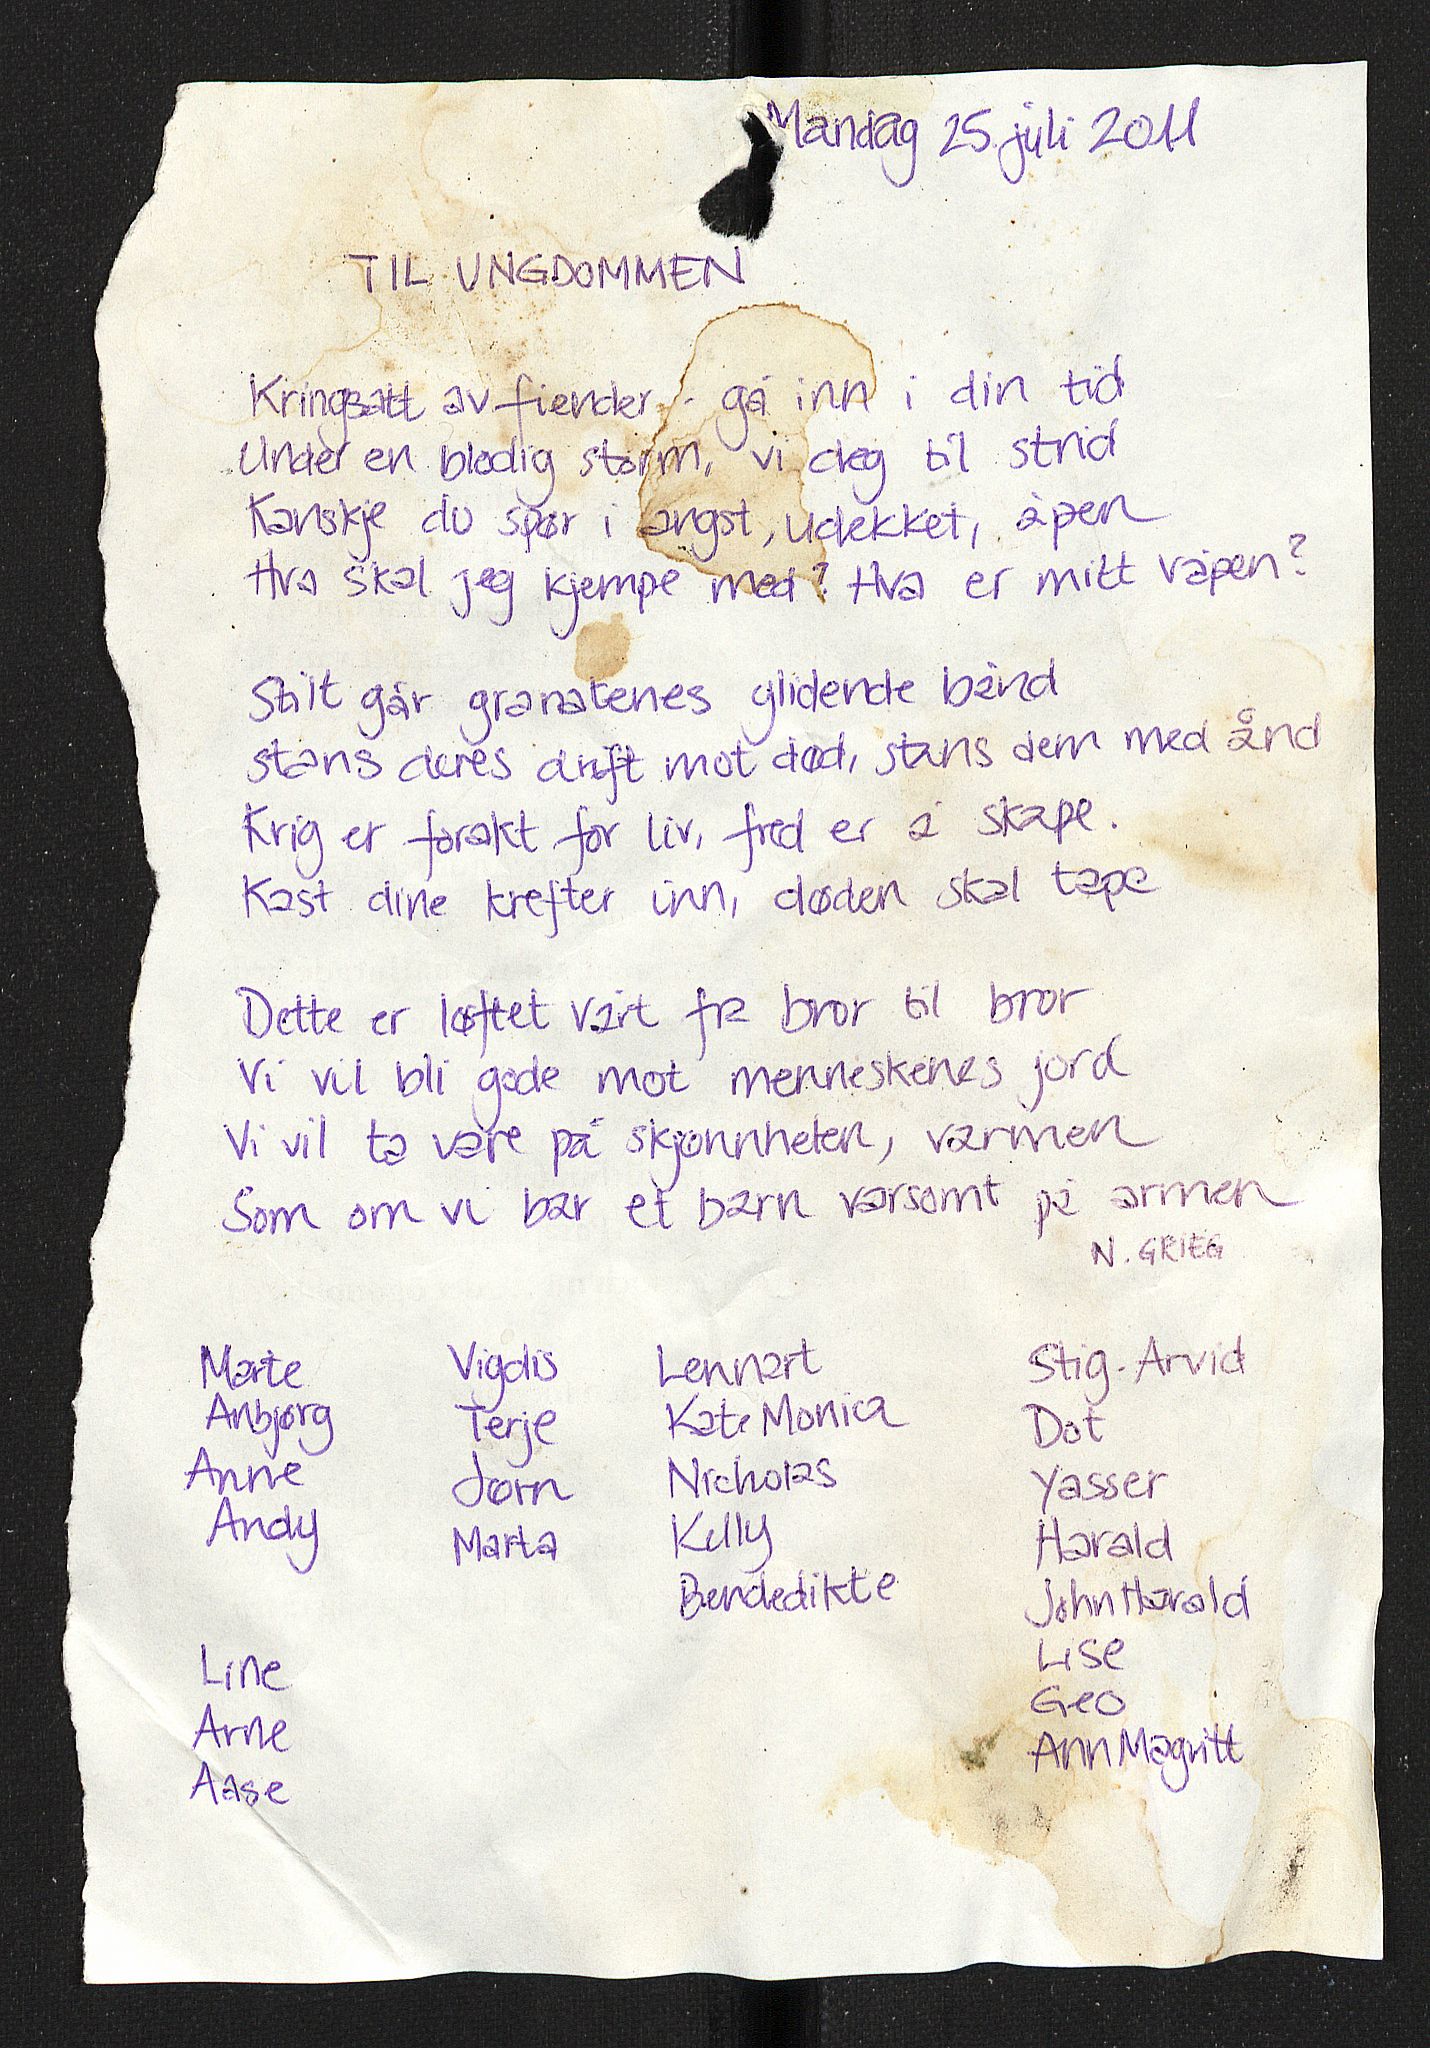 Mandag 25. juli 2011
TIL UNGDOMMEN
Kringsatt av fiender - gå inn i din tid
Under en blodig storm, vi deg til strid
Kanskje du spør i angst, udekket, åpen
Hva skal jeg kjempe med? Hva er mitt våpen?
Stilt går granatenes glidende bånd
stans deres drift mot død, stans dem med ånd
Krig er forakt for liv, fred er å skape.
Kast dine krefter inn, døden skal tape
Dette er løftet vårt fra bror til bror
Vi vil bli gode mot menneskenes jord
Vi vil ta vare på skjønnheten, varmen
Som om vi bar et barn varsomt på armen
N. GRIEG
Marte
Anbjørg
Anne
Andy
Line
Arne
Aase
Vigdis
Terje
Jørn
Marta
Lennart
Kate Monica
Nicholas
Kelly
Bendedikte
Stig-Arvid
Dot
Yasser
Harald
John Harald
Lise
Geo
Ann Magritt